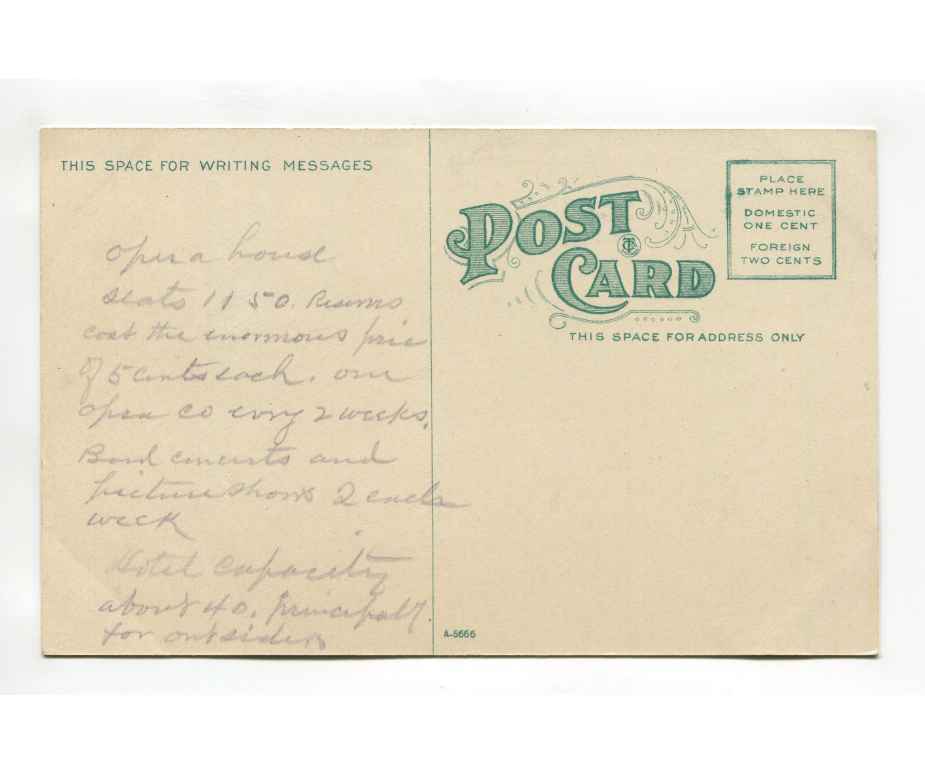 THIS SPACE FOR WRITING MESSAGES
Opera house
seats 1150. Reserves
cost the enormous price
of 5 cents each. One
opera co every 2 weeks.
Band concerts and
picture shows 2 each
week
Hotel capacity
about 40. principally
for outsiders
POST
CARD
THIS SPACE FOR ADDRESS ONLY
PLACE
STAMP HERE
DOMESTIC
ONE CENT
FOREIGN
TWO CENTS
A-5666